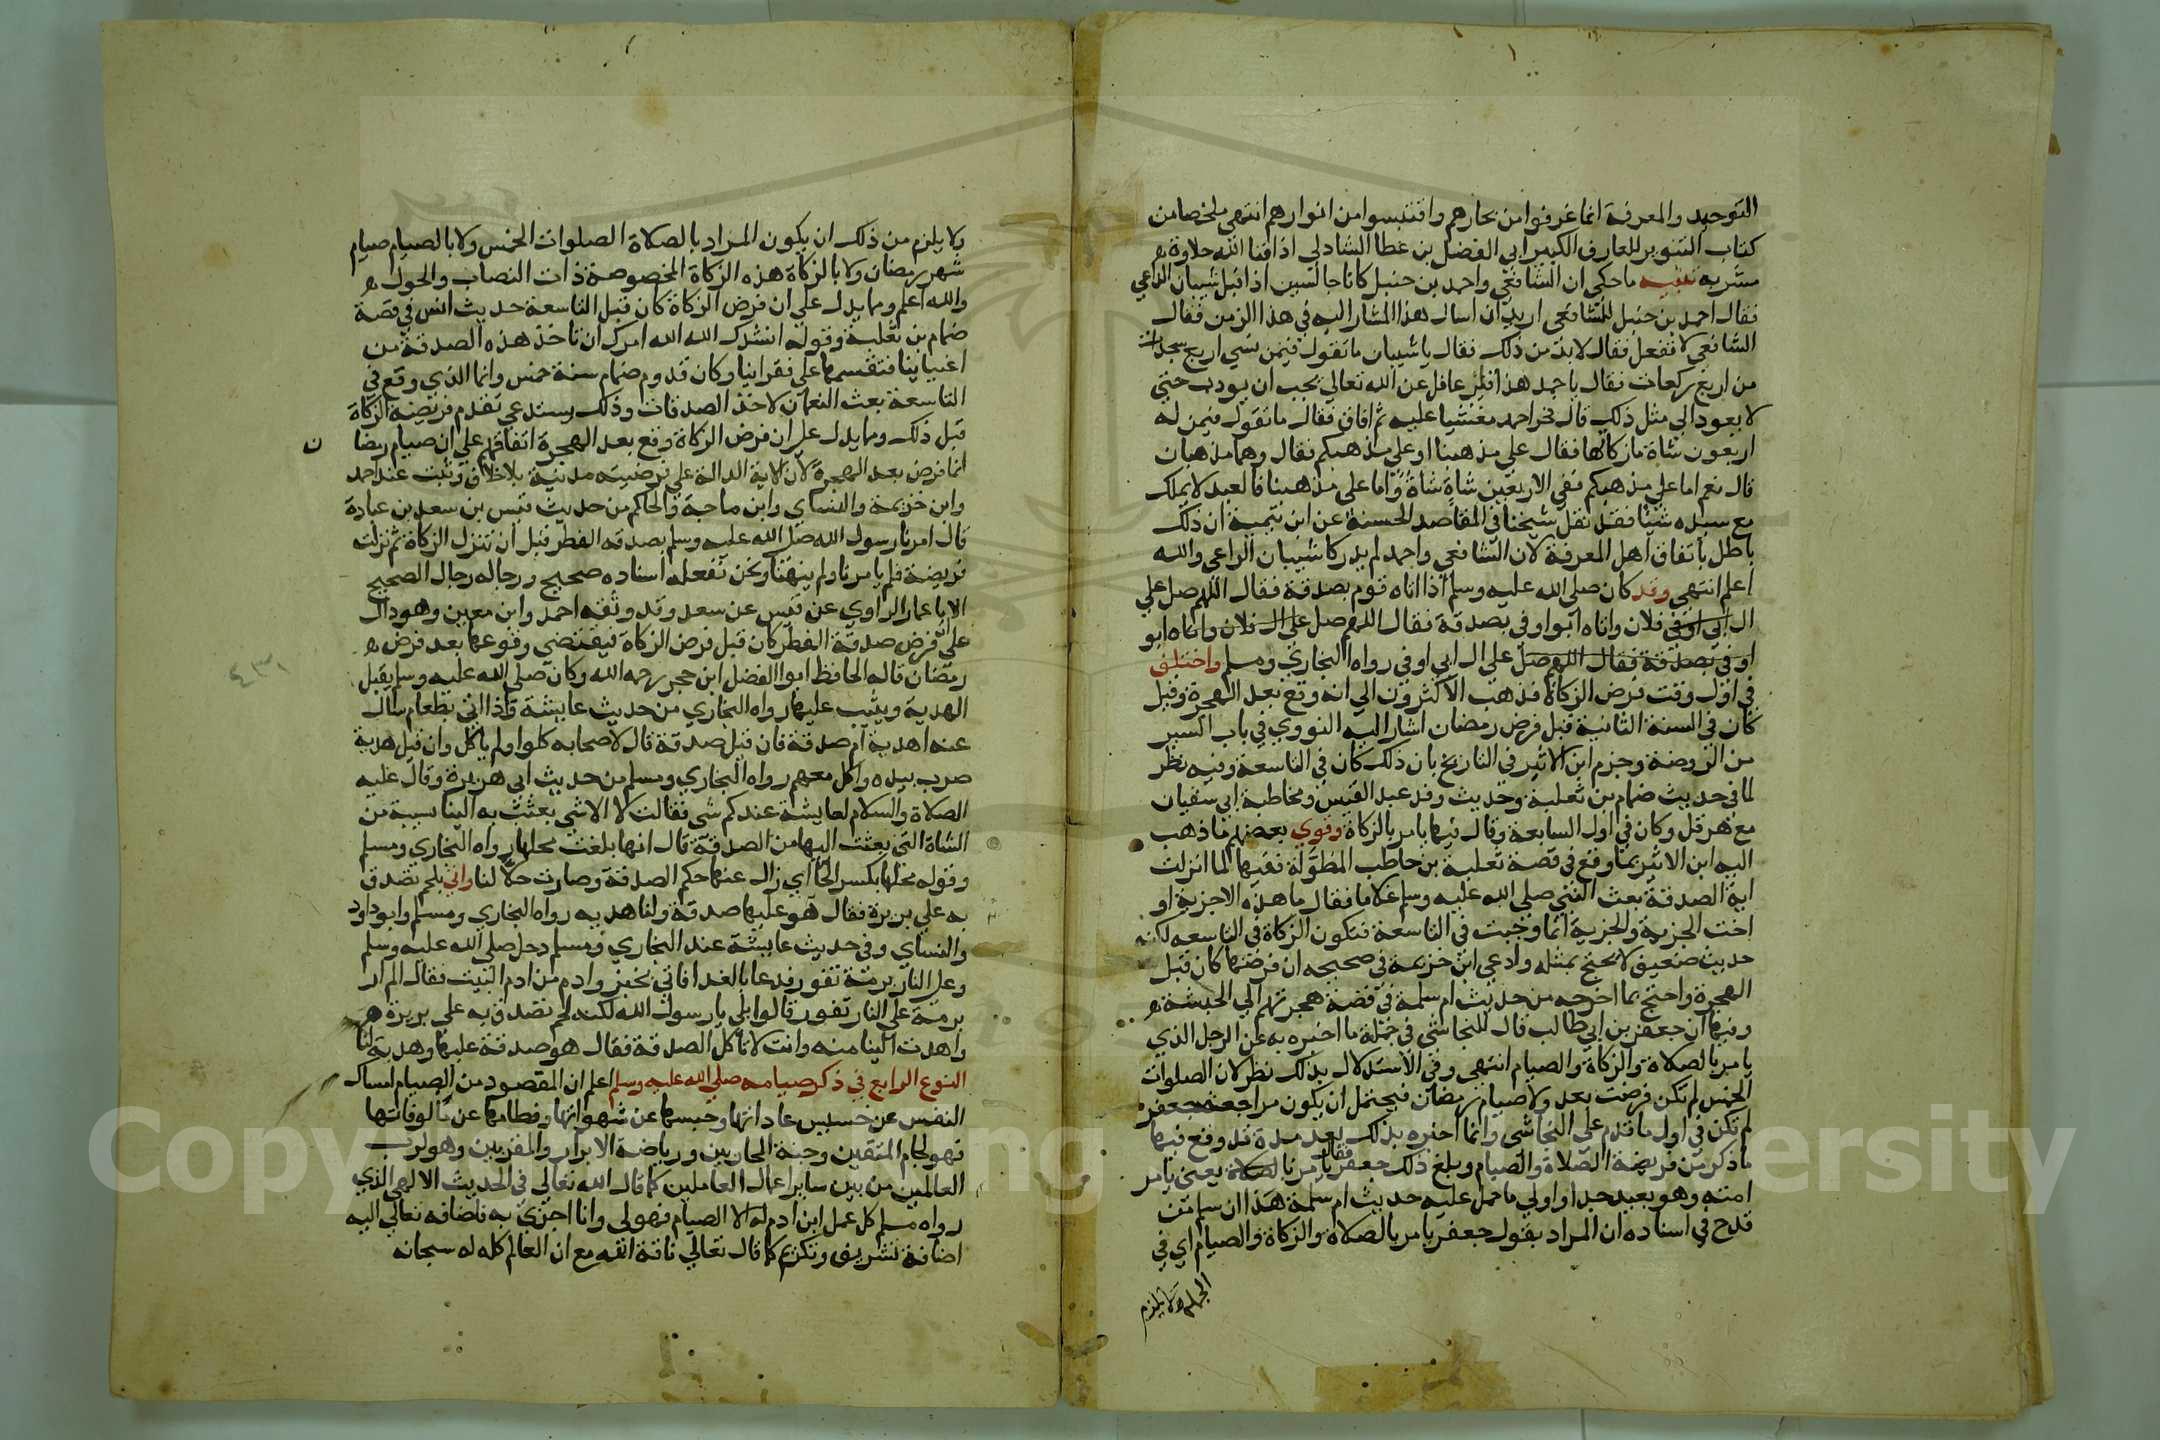 التوحيد والمعرفة انما غرفوا من بحارهم واقتبسوا من انوارهم انتهى ملخصا من
كتاب التنوير للعارف الكبير ابي الفضل بن عطا الشادلي اذاقنا الله حلاوة
مشربه تنبيه ماحكى ان الشافعي واحمد بن حنبل كانا جالسين اذ اقبل شيبان الراعي
فقال احمد بن حنبل للشافعي اريد ان اسال هذا المشار اليه في هذا الزمن فقال
الشافعي لا تفعل فقال لابد من ذلك فقال يا شيبان ما تقول فيمن نسي اربع سجدات
من اربع ركعات فقال يا احمد هذا قلب غافل عن الله تعالى يجب ان يودب حتى
لا يعود الى مثل ذلك قال فخر احمد مغشيا عليه ثم افاق فقال ما تقول فيمن له
اربعون شاة ما زكاتها فقال على مذهبنا او على مذهبكم فقال وهما مذهبان
قال نعم اما على مذهبكم ففي الاربعين شاة شاة واما على مذهبنا فالعبد لا يملك
مع سيده شيئا فقد نقل شيخنا في المقاصد الحسنة عن ابن تيمية ان ذلك
باطل باتفاق اهل المعرفة لان الشافعي واحمد لم يدركا شيبان الراعي والله
اعلم انتهى وقد كان صلى الله عليه وسلم اذا اتاه قوم بصدقة فقال اللهم صل على
ال ابي اوفي فلان واتاه ابو اوفي بصدقة فقال اللهم صل على ال فلان واتاه ابو
اوفي بصدقة فقال اللهم صل على ال ابي اوفي رواه البخاري ومسلم واختلف
في اول وقت فرض الزكاة فذهب الاكثرون الى انه وقع بعد الهجرة وقيل
كان في السنة الثانية قبل فرض رمضان اشار اليه النووي في باب السير
من الروضة وجزم ابن الاثير في التاريخ بان ذلك كان في التاسعة وفيه نظر
لما في حديث ضمام بن ثعلبة وحديث وفد عبد القيس ومخاطبة ابي سفيان
مع هرقل وكان في اول السابعة وقال فيها يامر بالزكاة وقوي بعضهم ما ذهب
اليه ابن الاثير بما وقع في قصة ثعلبة بن حاطب المطولة ففيها لما انزلت
اية الصدقة بعث النبي صلى الله عليه وسلم غلاما فقال ما هذه الا جزية او
اخت الجزية والجزية انما وجبت في التاسعة فتكون الزكاة في التاسعه لكنه
حديث ضعيف لا يحتج بمثله وادعى ابن خزيمة في صحيحه ان فرضها كان قبل
الهجرة واحتج بما اخرجه من حديث ام سلمة في قصة هجرتهم الى الحبشة
وفيها ان جعفر بن ابي طالب قال للنجاشي في جملة ما اخبره به عن الرجل الذي
يامر بالصلاة والزكاة والصيام انتهى وفي الاستدلال بذلك نظر لان الصلوات
الخمس لم تكن فرضت بعد ولا صيام رمضان فيحتمل ان يكون مراجعة جعفر
لم تكن في اول ما قدم على النجاشي وانما اخبره بذلك بعد مدة قد وقع فيها
ما ذكر من فريضة الصلاة والصيام وبلغ ذلك جعفر فقال يامر بالصلاة يعني يامر
امته وهو بعيد جدا واولى ما حمل عليه حديث ام سلمة هذا ان سلم من
قدح في اسناده ان المراد بقول جعفر يامر بالصلاة والزكاة والصيام اي في
الجملة ولا يلزم
ولا يلزم من ذلك ان يكون المراد بالصلاة الصلوات الخمس ولا بالصيام صيام
شهر رمضان ولا بالزكاة هذه الزكاة المخصوصة ذات النصاب والحول
والله اعلم ومما يدل على ان فرض الزكاة كان قبل التاسعة حديث انس في قصة
ضمام بن ثعلبة وقوله انشدك الله الله امرك ان تاخذ هذه الصدقة من
اغنياينا فتقسمها على فقراينا وكان قدوم ضمام سنة خمس وانما الذي وقع في
التاسعة بعث العمال لاخذ الصدقات وذلك يستدعي تقدم فريضة الزكاة
قبل ذلك ومما يدل على ان فرض الزكاة وقع بعد الهجرة اتفاقهم على ان صيام رمضا
ن
انما فرض بعد الهجرة لان الاية الدالة على فرضيته مدنية بلا خلاف وثبت عند احمد
وابن خزيمة والنساي وابن ماجة والحاكم من حديث قيس بن سعد بن عبادة
قال امرنا رسول الله صلى الله عليه وسلم بصدقه الفطر قبل ان تنزل الزكاة ثم نزلت
فريضة فلم يامرنا ولم ينهنا ونحن نفعله اسناده صحيح ورجاله رجال الصحيح
الا ابا عمار الراوي عن قيس عن سعد وقد وثقه احمد وابن معين وهو دال
على ان فرض صدقة الفطر كان قبل فرض الزكاة فيقتضي وقوعها بعد فرض
رمضان قاله الحافظ ابو الفضل ابن حجر رحمه الله وكان صلى الله عليه وسلم يقبل
الهدية ويثيب عليها رواه البخاري من حديث عايشة واذا اتي بطعام سال
عنه اهدية ام صدقة فان قيل صدقة قال لاصحابه كلوا ولم ياكل وان قيل هدية
ضرب بيده واكل معهم رواه البخاري ومسلم من حديث ابي هريرة وقال عليه
الصلاة والسلام لعايشة عندكم شي فقالت لا الا شي بعثت به الينا نسيبة من
الشاة التي بعثت اليها من الصدقة قال انها بلغت محلها رواه البخاري ومسلم
وقوله محلها بكسر الحا اي زال عنها حكم الصدقة وصارت حلالا لنا واتي بلحم تصدق
به على بريرة فقال هو عليها صدقة ولنا هديه رواه البخاري ومسلم وابوداود
والنساي وفي حديث عايشة عند البخاري ومسلم دخل صلى الله عليه وسلم
وعلى النار برمة تفور فدعا بالغدا فاتي بخبز وادم من ادم البيت فقال الم ار
برمة على النار تفور قالوا بلى يا رسول الله لكنه لحم تصدق به على بريرة
واهدت الينا منه وانت لا تاكل الصدقة فقال هو صدقة عليها وهدية لنا
النوع الرابع في ذكر صيامه صلى الله عليه وسلم اعلم ان المقصود من الصيام امساك
النفس عن خسيس عاداتها وحبسها عن شهواتها وفطامها عن مالوفاتها
فهو لجام المتقين وجنة المحاربين ورياضة الابرار والمقربين وهو لرب
العالمين من بين ساير اعمال العاملين كما قال الله تعالى في الحديث الالهي الذي
رواه مسلم كل عمل ابن ادم له الا الصيام فهو لي وانا اجزي به فاضافه تعالى اليه
اضافة تشريف وتكريم كما قال تعالى ناقة الله مع ان العالم كله له سبحانه